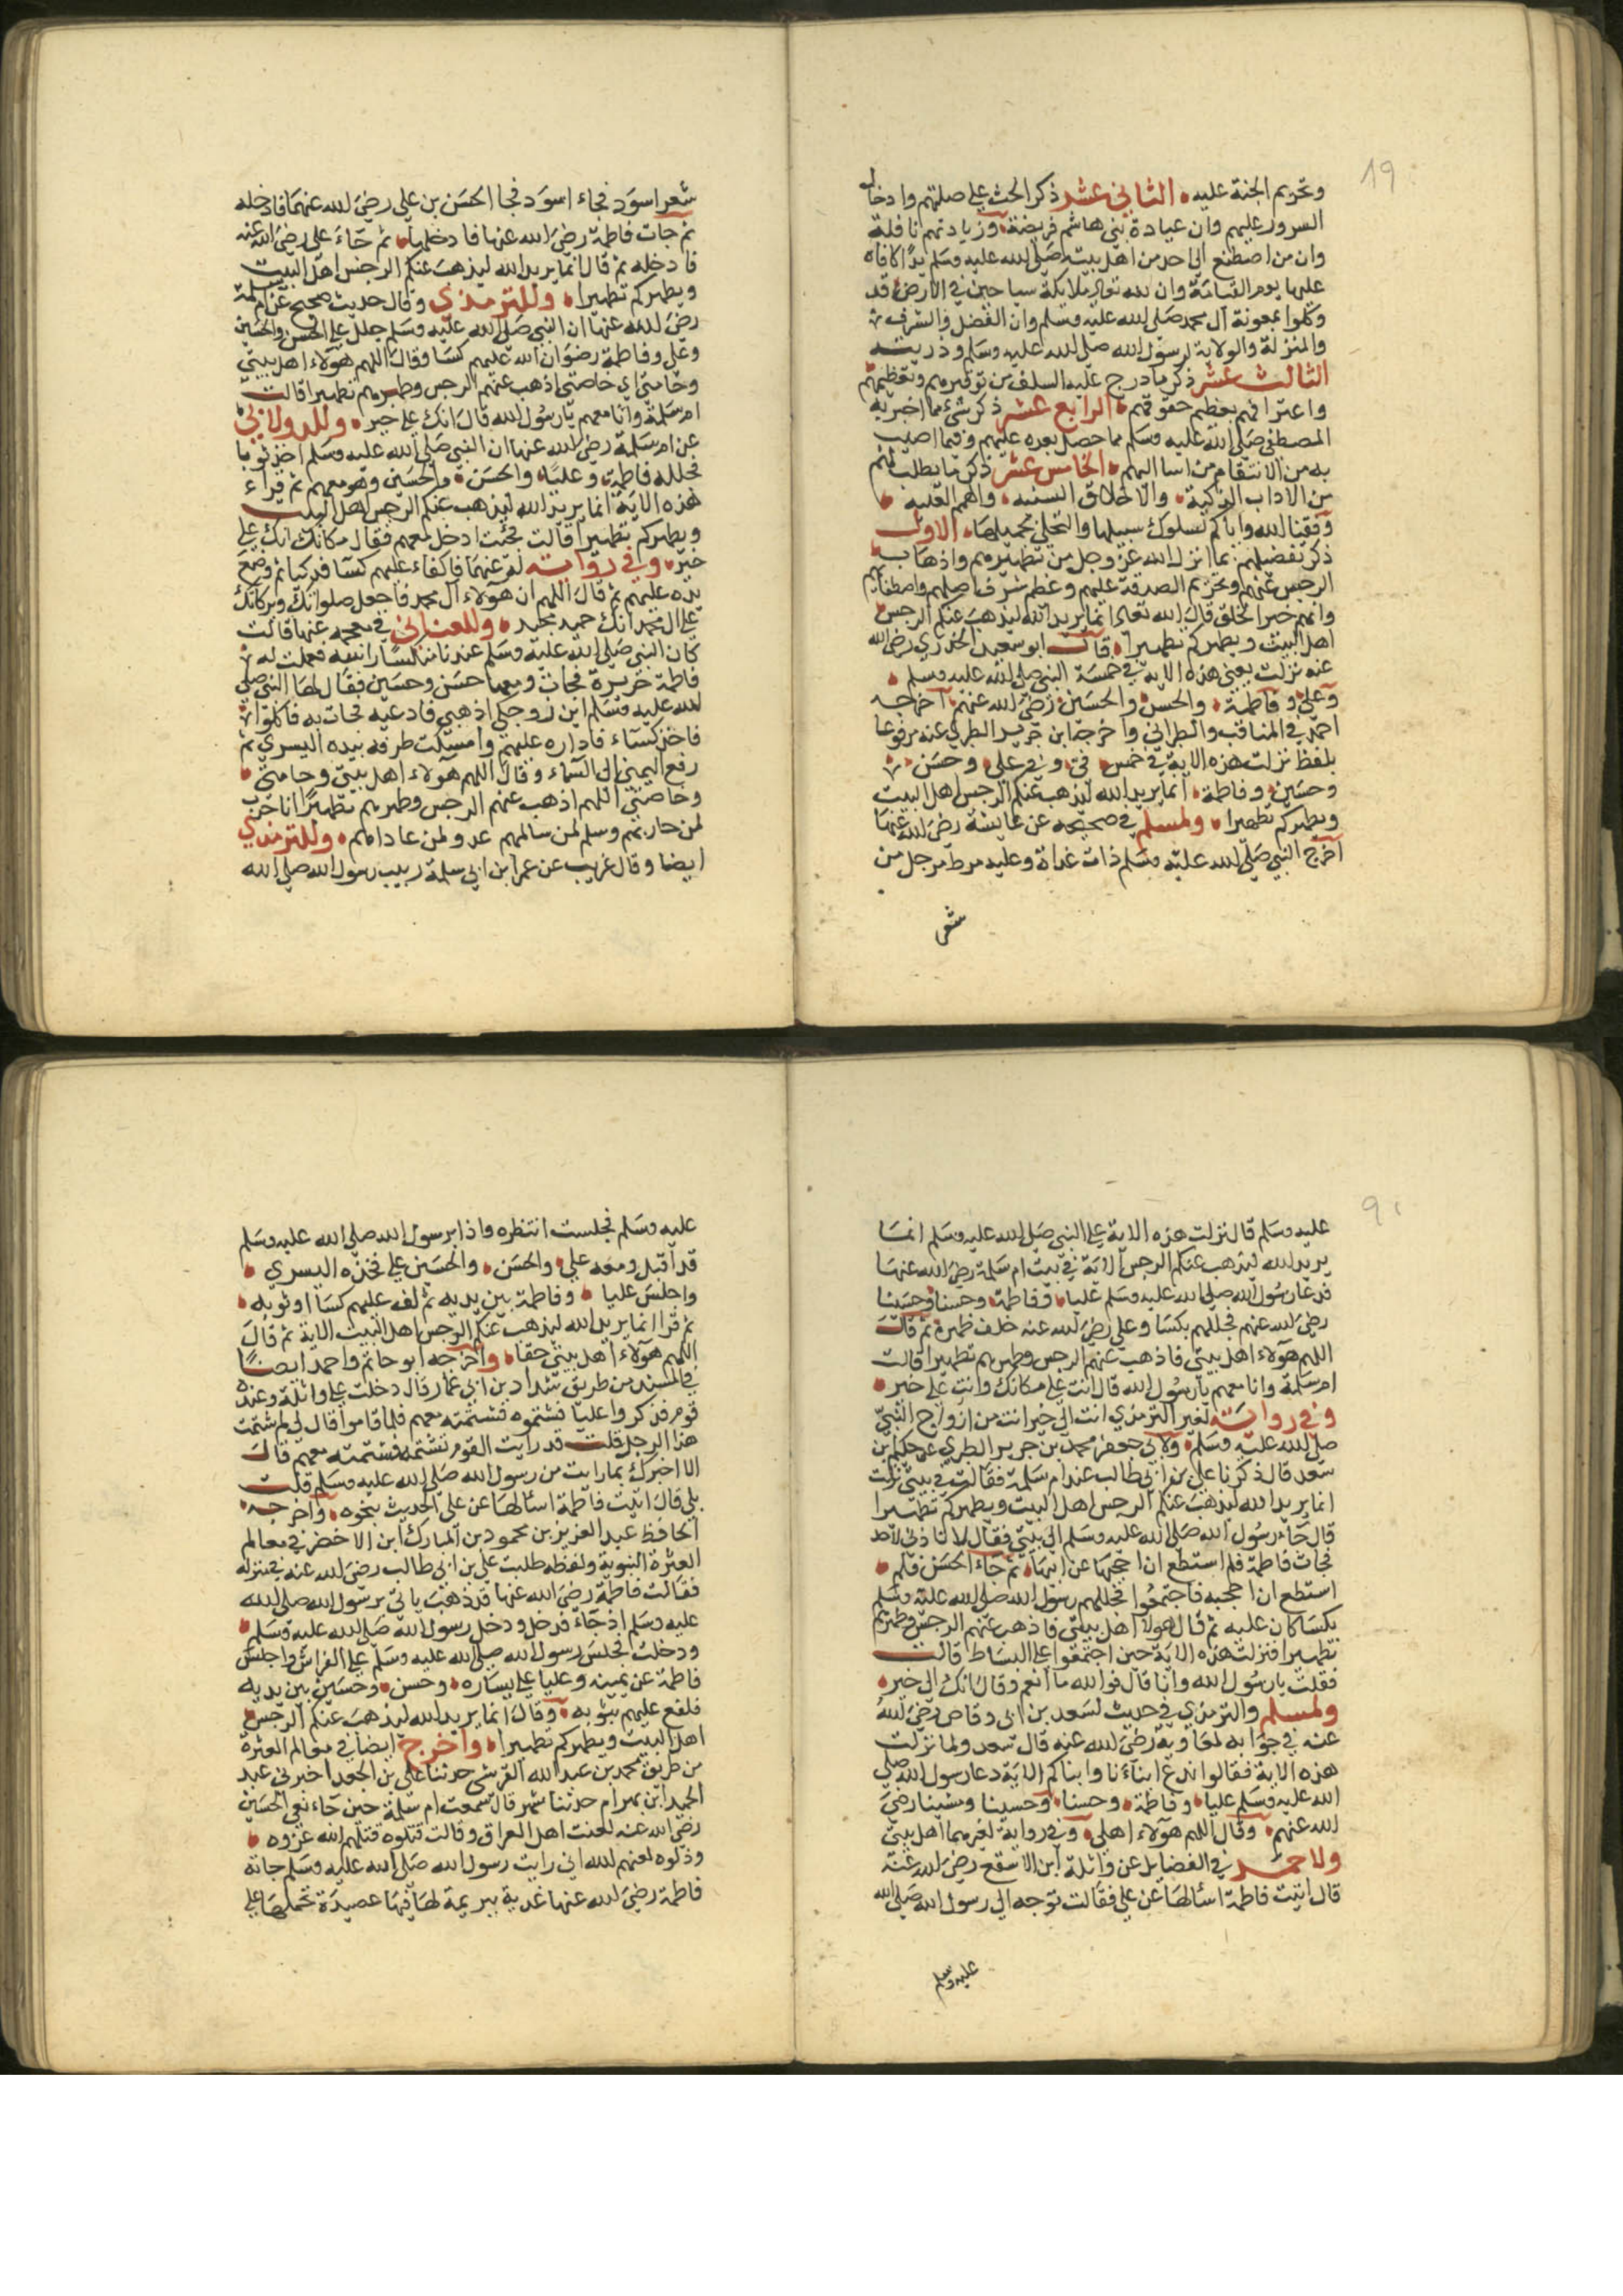 19
وتحريم الجنة عليه الثاني عشر ذكر الحث علي صلتهم وادخال
السرور عليهم وان عيادة بني هاشم فريضة وزيادتهم نافلة
وان من اصطنع الي احد من اهل بيته صلي الله عليه وسلم يدًا كافاه
عليها يوم القيامة وان لله تعالي ملايكة سياحين في الارض قد
وكلوا بمعونة آل محمد صلي الله عليه وسلم وان الفضل والشرف
والمنزلة والولاية لرسول الله صلي الله عليه وسلم وذريته
الثالث عشر ذكر ما درج عليه السلف من توقيرهم وتعظيمهم
واعترافهم بعظيم حقوقهم الرابع عشر ذكر شئ مما اخبر به
المصطفي صلي الله عليه وسلم مما حصل بعده عليهم وفيما اصيب
به من الانتقام من اسا اليهم الخامس عشر ذكر ما يطلب منهم
من الاداب الزكية والاخلاق السنيه والهمم العليه
وفقنا الله واياكم لسلوك سبيلها والتحلي بجميلها الاول
ذكر تفضيلهم بما انزل الله عز وجل من تطهيرهم واذهاب
الرجس عنهم وتحريم الصدقة عليهم وعظم شرف اصلهم واصطفايهم
وانهم خير الخلق قال الله تعالي انما يريد الله ليذهب عنكم الرجس
اهل البيت ويطهركم تطهيرا قال ابو سعيد الخدري رضي الله
عنه نزلت يعني هذه الاية في خمسة النبي صلي الله عليه وسلم
وعلي وفاطمة والحسن والحسين رضي الله عنهم اخرجه
احمد في المناقب والطبراني واخرجه ابن جرير الطبري عنه مرفوعا
بلفظ نزلت هذه الاية في خمس في وفي علي وحسن
وحسين وفاطمة انما يريد الله ليذهب عنكم الرجس اهل البيت
ويطهركم تطهيرا ولمسلم في صحيحه عن عايشة رضي الله عنها
اخرج النبي صلي الله عليه وسلم ذات غداة وعليه مرط مرجل من
شعر
شعر اسود فجاء اسود فجا الحسن بن علي رضي الله عنهما فادخله
ثم جات فاطمة رضي الله عنها فادخلها ثم جاء علي رضي الله عنه
فادخله ثم قال انما يريد الله ليذهب عنكم الرجس اهل البيت
ويطهركم تطهيرا وللترمذي وقال حديث صحيح عن ام سلمة
رضي الله عنها ان النبي صلي الله عليه وسلم جلل علي الحسن والحسين
وعلي وفاطمة رضوان الله عليهم كسا وقال اللهم هولاء اهل بيتي
وخاصتي اي خاصتي اذهب عنهم الرجس وطهرهم تطهيرا قالت
ام سلمة وانا معهم يارسول الله قال انك علي خير وللدولابي
عن ام سلمة رضي الله عنها ان النبي صلي الله عليه وسلم اخذ ثوبا
فجلله فاطمة وعليًا والحسن والحسين وهو معهم ثم قراء
هذه الاية انما يريد الله ليذهب عنكم الرجس اهل البيت
ويطهركم تطهيرا قالت فجئت ادخل معهم فقال مكانك انك علي
خير وفي رواية لغير عنها فاكفاء عليهم كسا فدكيا ثم وضع
يده عليهم ثم قال اللهم ان هولاء آل محمد فاجعل صلواتك وبركاتك
علي ال محمد انك حميد مجيد وللطبراني في معجمه عنها قالت
كان النبي صلي الله عليه وسلم عندنا منكسا راسه فعملت له
فاطمة خزيرة فجات ومعها حسن وحسين فقال لها النبي صلي
الله عليه وسلم اين زوجكي اذهبي فادعيه فجات به فاكلوا
فاخذ كساء فاداره عليهم وامسكت طرفه بيده اليسري ثم
رفع اليمني الي السماء وقال اللهم هولاء اهل بيتي وحامتي
وخاصتي اللهم اذهب عنهم الرجس وطهرهم تطهيرًا انا حرب
لمن حاربهم وسلم لمن سالمهم عدو لمن عاداهم وللترمذي
ايضا وقال غريب عن عمر ابن ابي سلمة ربيب رسول الله صلي الله
عليه وسلم قال نزلت هذه الاية علي النبي صلي الله عليه وسلم انما
يريد الله ليذهب عنكم الرجس الاية في بيت ام سلمة رضي الله عنها
فدعا رسول الله صلي الله عليه وسلم عليا وفاطمة وحسنا وحسينا
رضي الله عنهم فجللهم بكسا وعلي رضي الله عنه خلف ظهره ثم قال
اللهم هولاء اهل بيتي فاذهب عنهم الرجس وطهرهم تطهيرا قالت
ام سلمة وانا معهم يارسول الله قال انت علي مكانك وانت علي خير
وفي رواية لغير الترمذي انت الي خير انت من ازواج النبي
صلي الله عليه وسلم ولابي جعفر محمد بن جرير الطبري عن حكيم بن
سعد قال ذكرنا علي بن ابي طالب عند ام سلمة فقالت في بيتي نزلت
انما يريد الله ليذهب عنكم الرجس اهل البيت ويطهركم تطهيرا
قال جاء رسول الله صلي الله عليه وسلم الي بيتي فقال لا تاذني لاحد
فجات فاطمة فلم استطع ان احجبها عن ابيها ثم جاء الحسن فلم
استطع ان احجبه فاجتمعوا فجللهم رسول الله صلي الله عليه وسلم
بكسا كان عليه ثم قال هولا اهل بيتي فاذهب عنهم الرجس وطهرهم
تطهيرا فنزلت هذه الاية حين اجتمعوا علي البساط قالت
فقلت يارسول الله وانا قال فوالله ما انعم وقال انك الي خير
ولمسلم والترمذي في حديث لسعد بن ابي وقاص رضي الله
عنه في جوابه لمعاوية رضي الله عنه قال سعد ولما نزلت
هذه الاية فقالوا ندع ابناءنا وابناكم الاية دعا رسول الله صلي
الله عليه وسلم عليا وفاطمة وحسنا وحسينا رضي
الله عنهم وقال اللهم هولاء اهلي وفي رواية لغيرهما اهل بيتي
ولاحمد في الفضايل عن واثلة ابن الاسقع رضي الله عنه
قال اتيت فاطمة اسالها عن علي فقالت توجه الي رسول الله صلي الله
عليه وسلم
عليه وسلم فجلست انتظره واذا برسول الله صلي الله عليه وسلم
قد اقبل ومعه علي والحسن والحسين علي فخذه اليسري
واجلس عليا وفاطمة بين يديه ثم لف عليهم كسا او ثوبه
ثم قرا انما يريد الله ليذهب عنكم الرجس اهل البيت الاية ثم قال
اللهم هولاء اهل بيتي حقا واخرجه ابو حاتم واحمد ايضًا
في المسند من طريق شداد بن ابي عمار قال دخلت علي واثلة وعنده
قوم فذكروا عليا فشتموه فشتمته معهم فلما قاموا قال لي لم شتمت
هذا الرجل قلت قد رايت القوم شتموه فشتمته معهم قال
الا اخبرك بما رايت من رسول الله صلي الله عليه وسلم قلت
بلي قال اتيت فاطمة اسالها عن علي الحديث بنحوه واخرجه
الحافظ عبد العزيز بن محمود بن المبارك ابن الاخضر في معالم
العترة النبوية ولفظه طلبت علي بن ابي طالب رضي الله عنه في منزله
فقالت فاطمة رضي الله عنها قد ذهب ياتي برسول الله صلي الله
عليه وسلم اذ جاء فدخل ودخل رسول الله صلي الله عليه وسلم
ودخلت فجلس رسول الله صلي الله عليه وسلم علي الفراش واجلس
فاطمة عن يمينه وعليا علي يساره وحسن وحسين بين يديه
فلفع عليهم بثوبه وقال انما يريد الله ليذهب عنكم الرجس
اهل البيت ويطهركم تطهيرا واخرج ايضا في معالم العترة
من طريق محمد بن عبد الله القرشي حدثنا علي بن الجعد اخبرني عبد
الحميد ابن بهرام حدثنا شهر قال سمعت ام سلمة حين جاء نعي الحسين
رضي الله عنه لعنت اهل العراق وقالت قتلوه قتلهم الله غروه
وذلوه لعنهم الله اني رايت رسول الله صلي الله عليه وسلم جاته
فاطمة رضي الله عنها غدية ببريمة لها فيها عصيدة تحملها علي